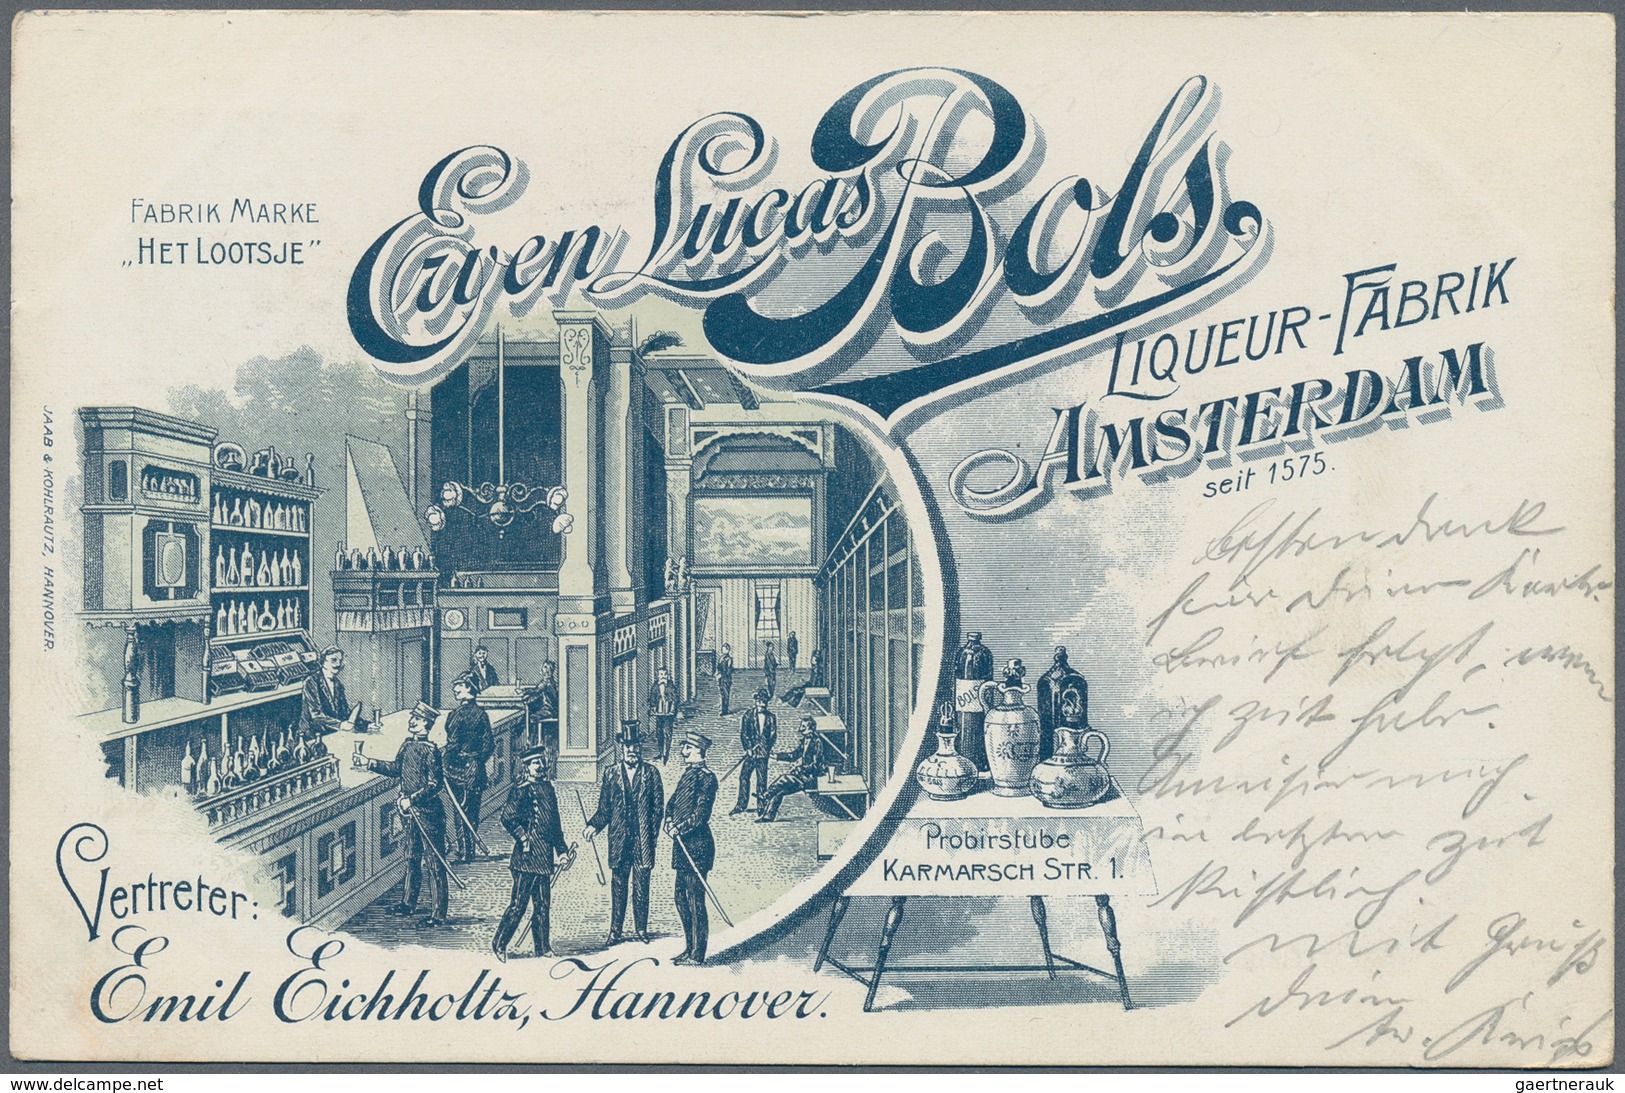 FABRIK MARKE
„HET LOOTSJE"
Erven Lucas Bols,
LIQUEUR-FABRIK
AMSTERDAM
seit 1575.
JAAB & KOHLRAUTZ, HANNOVER.
BOLS
Probirstube
KARMARSCH STR. 1.
Vertreter:
Emil Eichholtz, Hannover.
besten dank
für Deine Karte.
brief folgt, wen
ich zeit habe.
mich
in letzter zeit
mit Gruß
Dein
delcampe.net
gaertnerauk